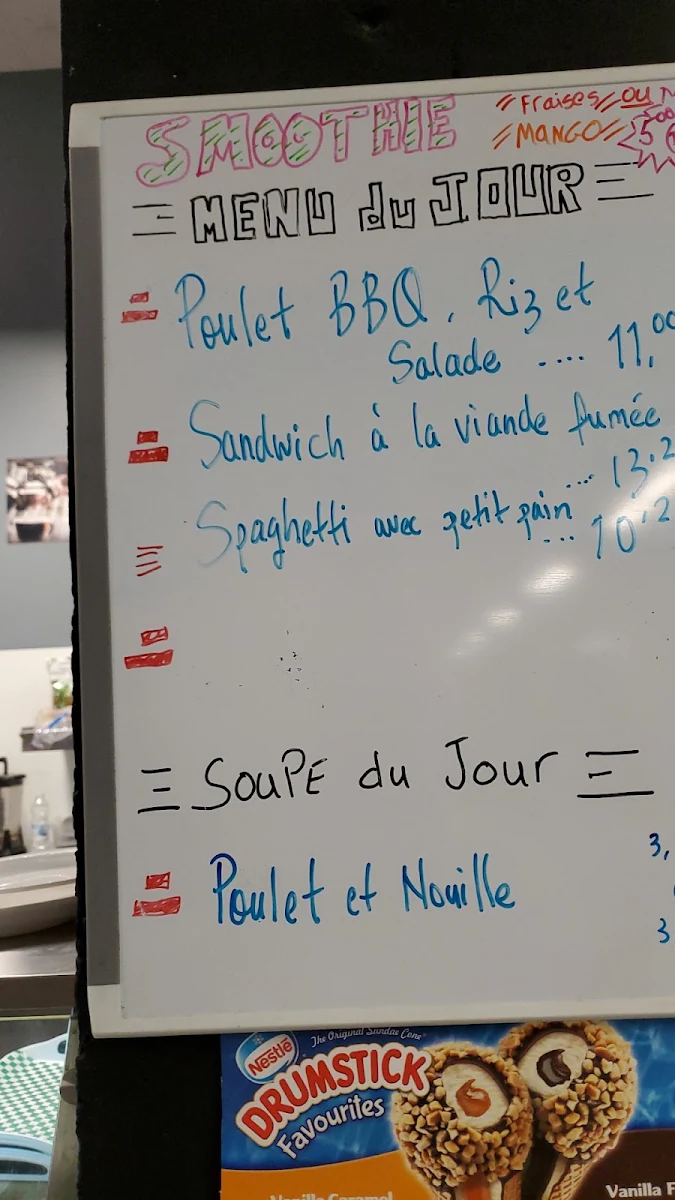 SMOOTHIE
"Fraises" OU
"MANGO"
MENU du JOUR
Poulet BBQ, Riz et
Salade .... 11,00
Sandwich à la viande fumée
... 13.2
Spaghetti avec petit pain
... 10,2
SOUPE du Jour
3,
Poulet et Nouille
3
The Original Sundae Cone
Nestlé
DRUMSTICK
Favourites
Vanilla Caramel
Vanilla F